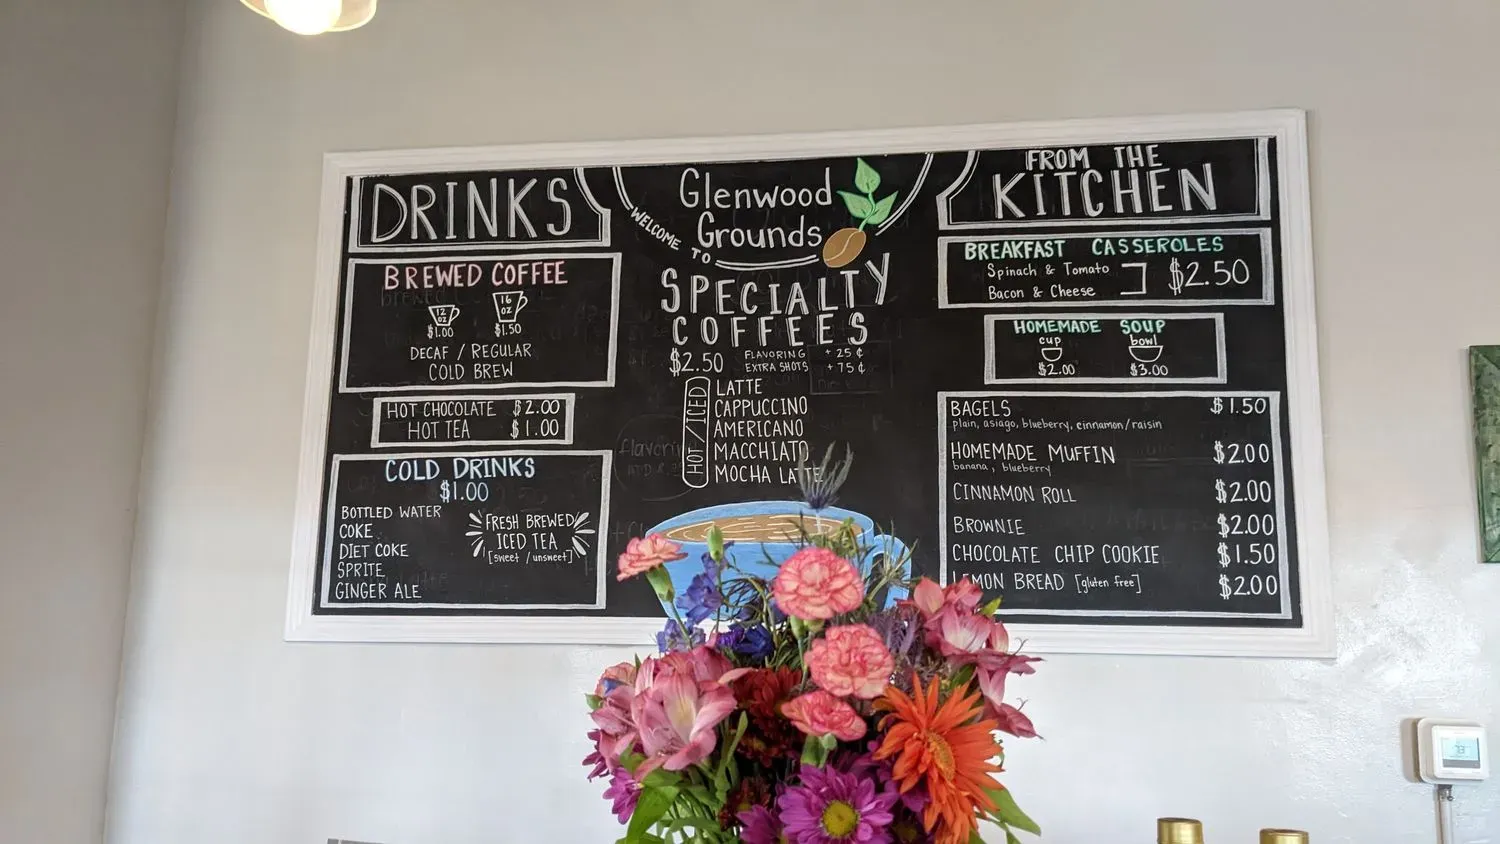 DRINKS
BREWED COFFEE
12 oz 16 oz
$1.00 $1.50
DECAF / REGULAR
COLD BREW
HOT CHOCOLATE $2.00
HOT TEA $1.00
COLD DRINKS
$1.00
BOTTLED WATER
COKE
DIET COKE
SPRITE
GINGER ALE
FRESH BREWED
ICED TEA
[sweet / unsweet]
WELCOME TO
Glenwood
Grounds
SPECIALTY
COFFEES
$2.50 FLAVORING + 25 ¢
EXTRA SHOTS + 75 ¢
HOT / ICED
LATTE
CAPPUCCINO
AMERICANO
MACCHIATO
MOCHA LATTE
FROM THE
KITCHEN
BREAKFAST CASSEROLES
Spinach & Tomato
Bacon & Cheese
$2.50
HOMEMADE SOUP
cup bowl
$2.00 $3.00
BAGELS $1.50
plain, asiago, blueberry, cinnamon/raisin
HOMEMADE MUFFIN $2.00
banana, blueberry
CINNAMON ROLL $2.00
BROWNIE $2.00
CHOCOLATE CHIP COOKIE $1.50
LEMON BREAD [gluten free] $2.00